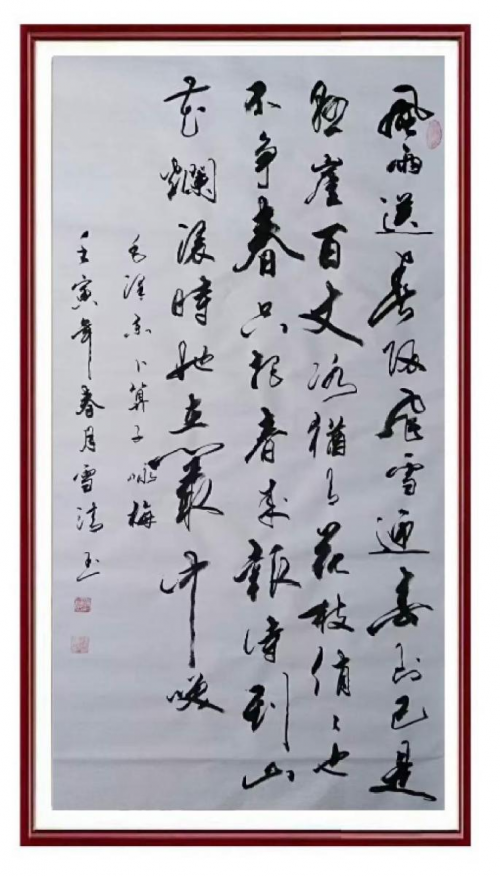 風雨送春歸飛雪迎春到已是
懸崖百丈冰猶有花枝俏〻也
不争春只把春来報待到山
花爛漫時她在叢中笑
毛澤東卜算子咏梅
壬寅年春月雪